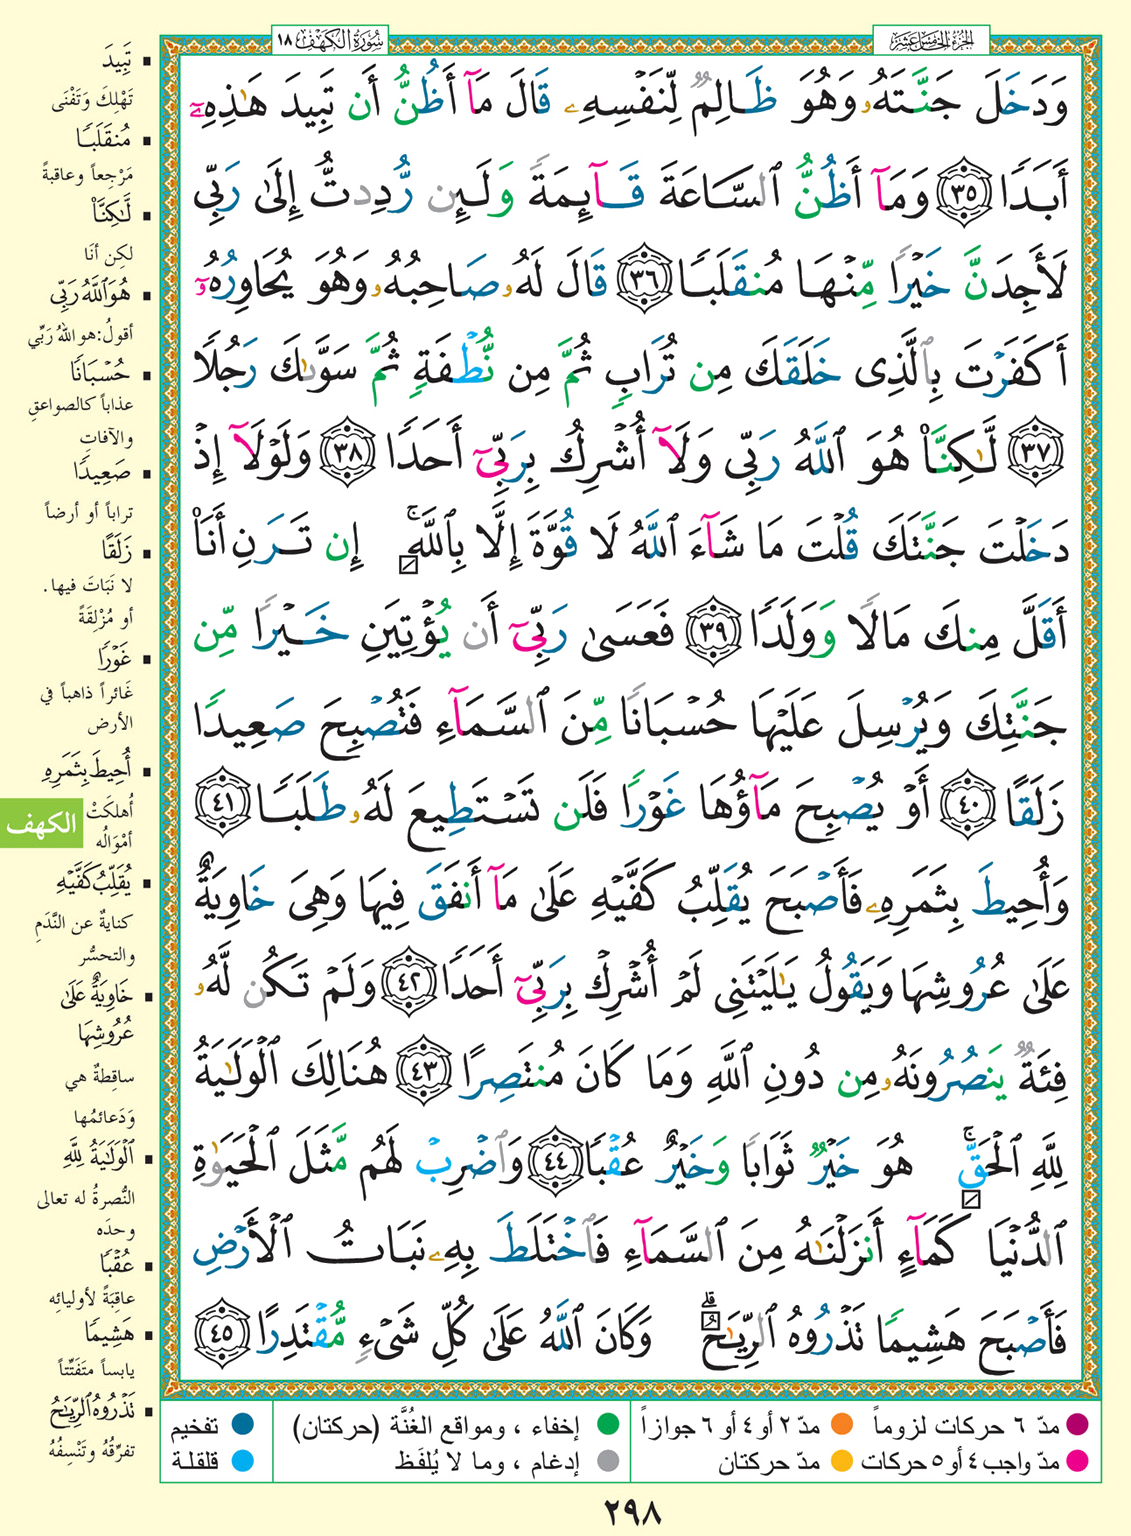 الجزء الخامس عشر
سُورَةُ الكَهْف ١٨
وَدَخَلَ جَنَّتَهُۥ وَهُوَ ظَالِمٌ لِّنَفْسِهِۦ قَالَ مَآ أَظُنُّ أَن تَبِيدَ هَٰذِهِۦٓ
أَبَدًا ٣٥ وَمَآ أَظُنُّ ٱلسَّاعَةَ قَآئِمَةً وَلَئِن رُّدِدتُّ إِلَىٰ رَبِّى
لَأَجِدَنَّ خَيْرًا مِّنْهَا مُنقَلَبًا ٣٦ قَالَ لَهُۥ صَاحِبُهُۥ وَهُوَ يُحَاوِرُهُۥٓ
أَكَفَرْتَ بِٱلَّذِى خَلَقَكَ مِن تُرَابٍ ثُمَّ مِن نُّطْفَةٍ ثُمَّ سَوَّىٰكَ رَجُلًا
٣٧ لَّٰكِنَّا۠ هُوَ ٱللَّهُ رَبِّى وَلَآ أُشْرِكُ بِرَبِّىٓ أَحَدًا ٣٨ وَلَوْلَآ إِذْ
دَخَلْتَ جَنَّتَكَ قُلْتَ مَا شَآءَ ٱللَّهُ لَا قُوَّةَ إِلَّا بِٱللَّهِۚ إِن تَرَنِ أَنَا۠
أَقَلَّ مِنكَ مَالًا وَوَلَدًا ٣٩ فَعَسَىٰ رَبِّىٓ أَن يُؤْتِيَنِ خَيْرًا مِّن
جَنَّتِكَ وَيُرْسِلَ عَلَيْهَا حُسْبَانًا مِّنَ ٱلسَّمَآءِ فَتُصْبِحَ صَعِيدًا
زَلَقًا ٤٠ أَوْ يُصْبِحَ مَآؤُهَا غَوْرًا فَلَن تَسْتَطِيعَ لَهُۥ طَلَبًا ٤١
وَأُحِيطَ بِثَمَرِهِۦ فَأَصْبَحَ يُقَلِّبُ كَفَّيْهِ عَلَىٰ مَآ أَنفَقَ فِيهَا وَهِىَ خَاوِيَةٌ
عَلَىٰ عُرُوشِهَا وَيَقُولُ يَٰلَيْتَنِى لَمْ أُشْرِكْ بِرَبِّىٓ أَحَدًا ٤٢ وَلَمْ تَكُن لَّهُۥ
فِئَةٌ يَنصُرُونَهُۥ مِن دُونِ ٱللَّهِ وَمَا كَانَ مُنتَصِرًا ٤٣ هُنَالِكَ ٱلْوَلَٰيَةُ
لِلَّهِ ٱلْحَقِّۚ هُوَ خَيْرٌ ثَوَابًا وَخَيْرٌ عُقْبًا ٤٤ وَٱضْرِبْ لَهُم مَّثَلَ ٱلْحَيَوٰةِ
ٱلدُّنْيَا كَمَآءٍ أَنزَلْنَٰهُ مِنَ ٱلسَّمَآءِ فَٱخْتَلَطَ بِهِۦ نَبَاتُ ٱلْأَرْضِ
فَأَصْبَحَ هَشِيمًا تَذْرُوهُ ٱلرِّيَٰحُۗ وَكَانَ ٱللَّهُ عَلَىٰ كُلِّ شَىْءٍ مُّقْتَدِرًا ٤٥
تَبِيدَ
تَهْلِكَ وَتَفْنَى
مُنقَلَبًا
مَرْجِعاً وعاقبةً
لَّٰكِنَّا۠
لكِن أنَا
هُوَ ٱللَّهُ رَبِّى
أقولُ: هو اللهُ رَبِّي
حُسْبَانًا
عذاباً كالصواعقِ
والآفاتِ
صَعِيدًا
تراباً أو أرضاً
زَلَقًا
لا نَبَاتَ فيها .
أو مُزْلِقَةً
غَوْرًا
غَائراً ذاهباً في
الأرض
أُحِيطَ بِثَمَرِهِ
أُهلكَتْ
أمْوَالُه
الكهف
يُقَلِّبُ كَفَّيْهِ
كنايةٌ عن النَّدَمِ
والتحسُّر
خَاوِيَةٌ عَلَىٰ
عُرُوشِهَا
ساقِطةٌ هي
وَدَعائمُها
ٱلْوَلَٰيَةُ لِلَّهِ
النُّصرةُ له تعالى
وحدَه
عُقْبًا
عاقِبَةً لأوليائِه
هَشِيمًا
يابساً متَفَتِّتاً
تَذْرُوهُ ٱلرِّيَٰحُ
تفرِّقُهُ وتَنْسِفُهُ
مدّ ٦ حركات لزوماً
مدّ ٢ أو ٤ أو ٦ جوازاً
إخفاء ، ومواقع الغُنَّة (حركتان)
تفخيم
مدّ واجب ٤ أو ٥ حركات
مدّ حركتان
إدغام ، وما لا يُلفَظ
قلقلة
٢٩٨